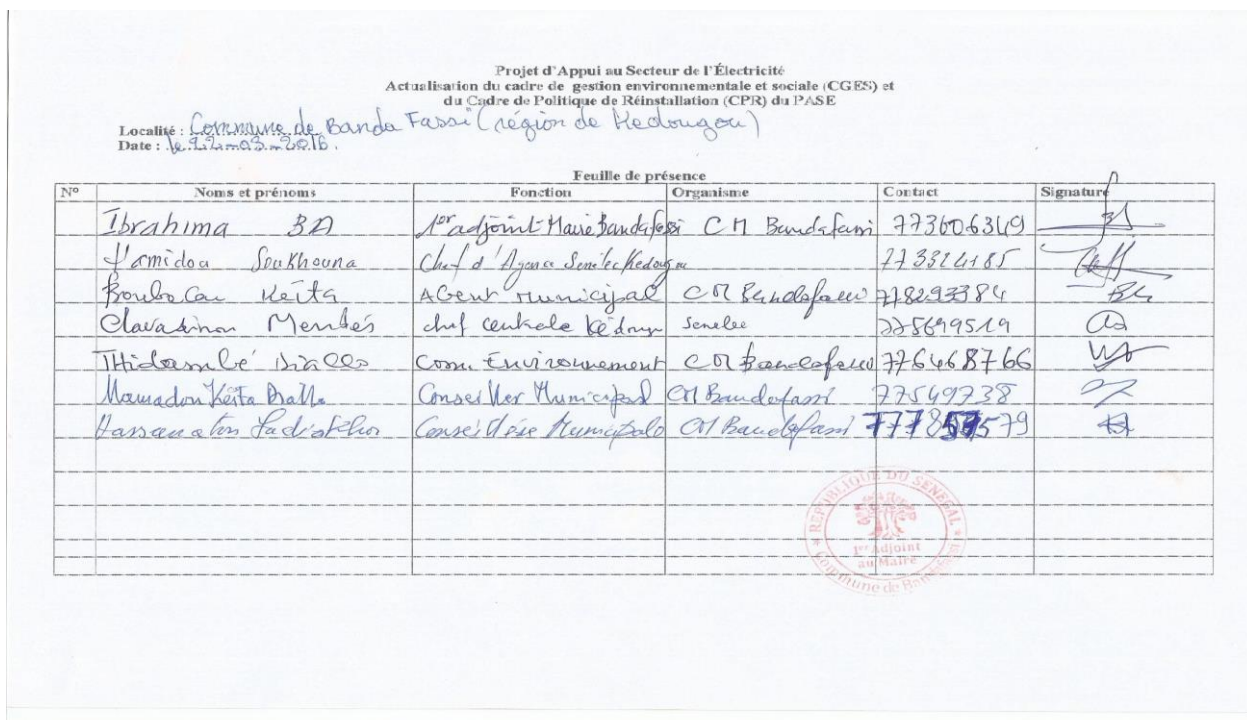 Projet d'Appui au Secteur de l'Électricité
Actualisation du cadre de gestion environnementale et sociale (CGES) et
du Cadre de Politique de Réinstallation (CPR) du PASE
Localité : Commune de Banda Fassi (région de Kedougou)
Date : le 22-03-2016.
Feuille de présence
N° Noms et prénoms Fonction Organisme Contact Signature
Ibrahima BA 1er adjoint Maire Bandafassi CM Bandafassi 773606349
Hamidou Soukhouna Chef d'Agence Senelec Kedougou 773324185
Boubacar Keita Agent municipal CM Bandafassi 778293384
Mendès chef centrale Kédougou Senelec 775699519
Diallo Com. Environnement CM Bandafassi 776468766
Mamadou Keita Diallo Conseiller Municipal CM Bandafassi 77549738
Conseillère Municipale CM Bandafassi
REPUBLIQUE DU SENEGAL
1er Adjoint
au Maire
Commune de